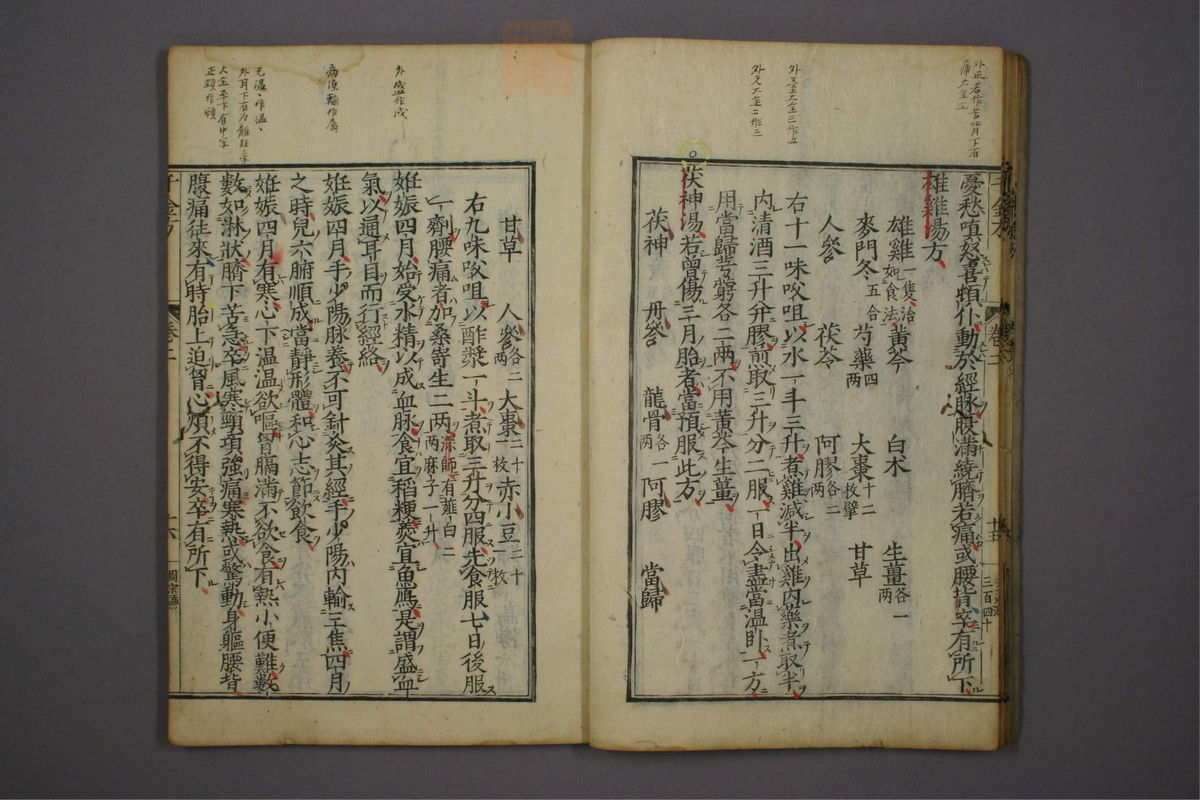 憂愁嗔怒喜頓仆動於經脉腹滿繞臍若痛或腰背卒有所下
雄雞湯方
雄雞一隻治如食法 黃芩 白朮 生薑各一兩
麥門冬五合 芍藥四兩 大棗十二枚擘 甘草
人參 茯苓 阿膠各二兩
右十一味㕮咀以水一斗三升煮雞減半出雞內藥煮取半
內清酒三升并膠煎取三升分二服一日令盡當溫臥一方
用當歸芎藭各二兩不用黃芩生薑
茯神湯若曾傷三月胎者當預服此方
茯神 丹參 龍骨各一兩 阿膠 當歸
甘草 人參各二兩 大棗二十一枚 赤小豆二十一枚
右九味㕮咀以酢漿一斗煮取三升分四服先食服七日後服
一劑腰痛者加桑寄生二兩深師有薤白二兩麻子一升
姙娠四月始受水精以成血脉食宜稻粳羮宜魚鴈是謂盛血
氣以通耳目而行經絡
姙娠四月手少陽脉養不可針灸其經手少陽內輸三焦四月
之時兒六腑順成當靜形體和心志節飲食
姙娠四月有寒心下温温欲嘔胷膈滿不欲食有熱小便難數
數如淋狀臍下苦急卒風寒頸項強痛寒熱或驚動身軀腰背
腹痛往來有時胎上迫胷心煩不得安卒有所下
千金方 卷二 十六
外盛作成
病源輸作属